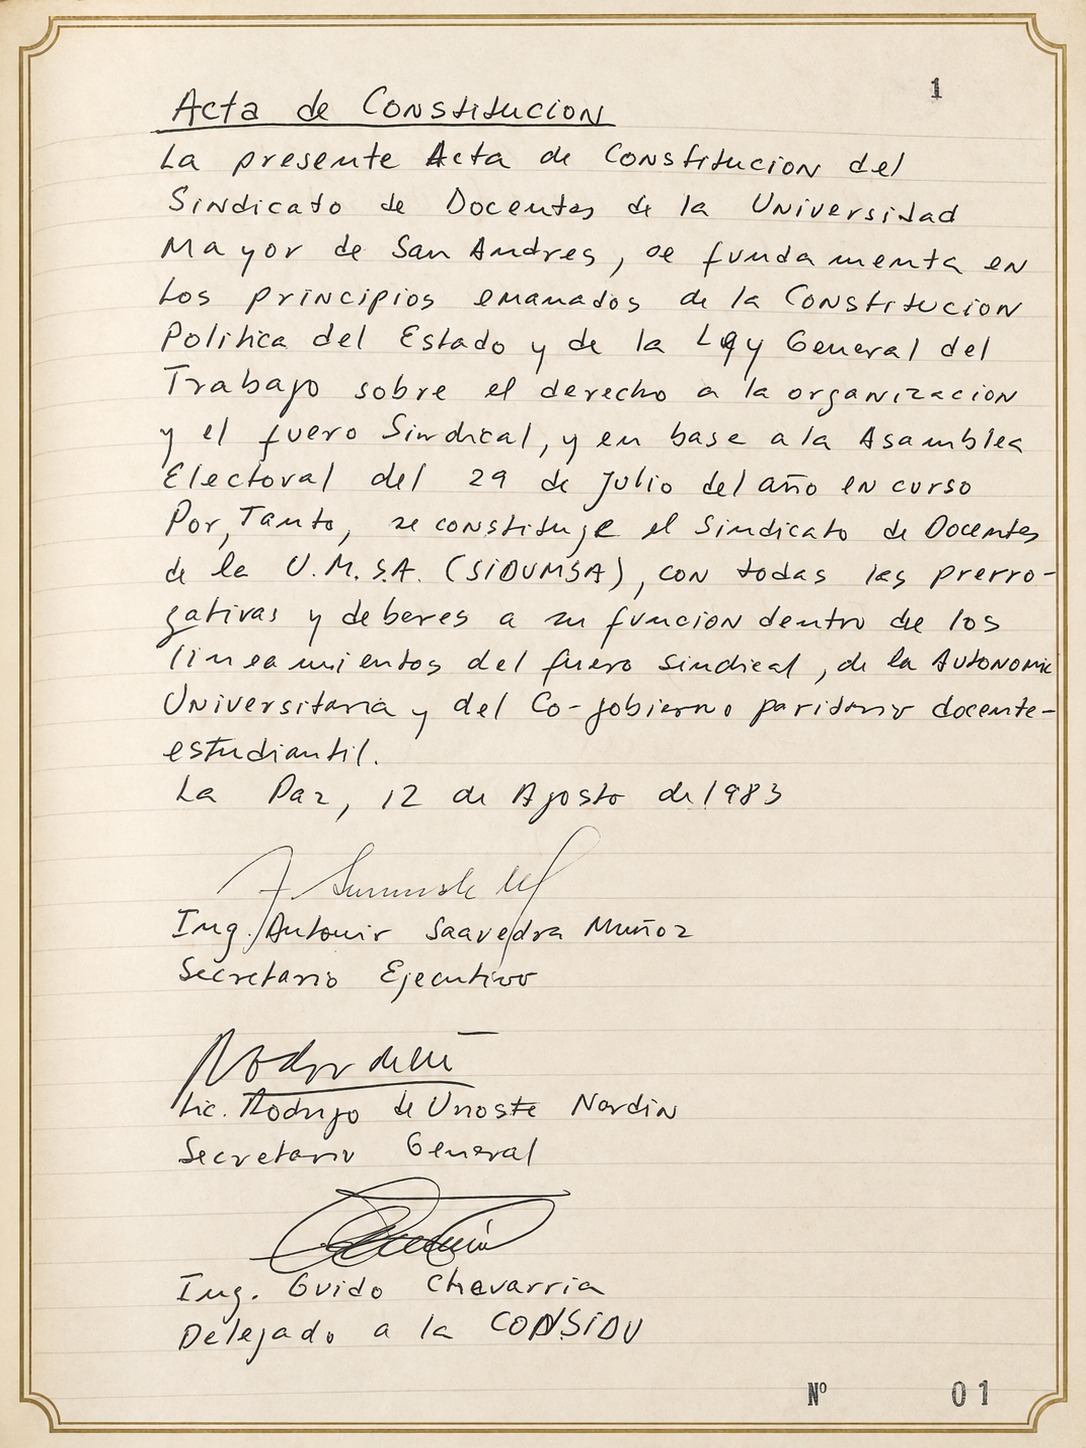 1
Acta de Constitucion
La presente Acta de Constitucion del
Sindicato de Docentes de la Universidad
Mayor de San Andres, se fundamenta en
los principios emanados de la Constitucion
Politica del Estado y de la Ley General del
Trabajo sobre el derecho a la organizacion
y el fuero Sindical, y en base a la Asamblea
Electoral del 29 de Julio del año en curso
Por, Tanto, se constituye el Sindicato de Docentes
de la U.M.S.A. (SIDUMSA), con todas las prerro-
gativas y deberes a su funcion dentro de los
lineamientos del fuero sindical, de la Autonomia
Universitaria y del Co-gobierno paritario docente-
estudiantil.
La Paz, 12 de Agosto de 1983
Ing. Antonio Saavedra Muñoz
Secretario Ejecutivo
Lic. Rodrigo de Urioste Nardin
Secretario General
Ing. Guido Chavarria
Delegado a la CONSIDU
Nº 01